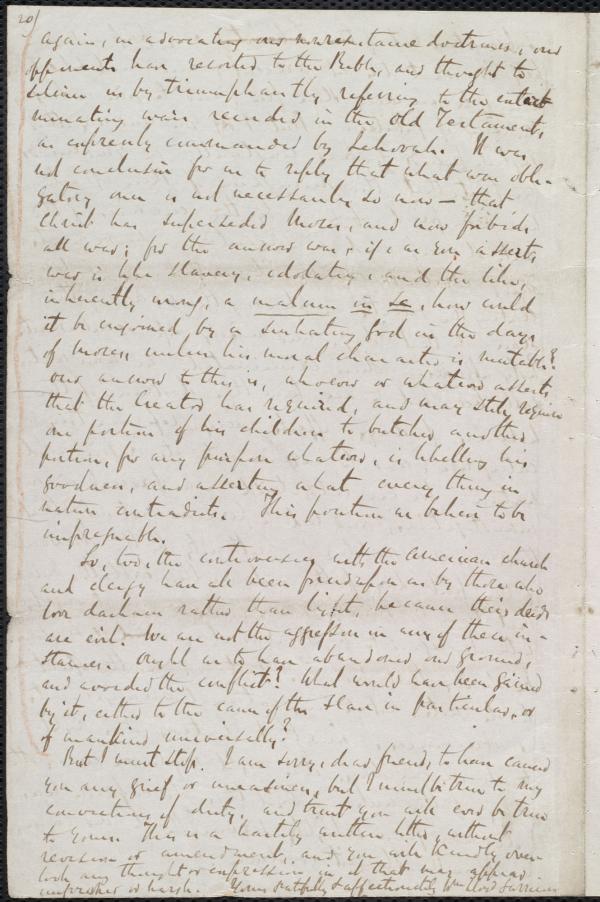 20/
Again, in advocating our nonresistance doctrines, our
opponents have resorted to the Bible, and thought to
silence us by triumphantly referring to the exter-
minating wars recorded in the Old Testament,
as expressly commanded by Jehovah. It was
not conclusive for us to reply that what was obli-
gatory once is not necessarily so now — that
Christ has superseded Moses, and now forbids
all war; for the answer was, if, as you assert,
war is like slavery, idolatry, and the like,
inherently wrong, a malum in se, how could
it be enjoined by a sin-hating God in the days
of Moses, unless his moral character is mutable?
Our answer to this is, whoever or whatever asserts
that the Creator has required, and may still require
one portion of his children to butcher another
portion, for any purpose whatever, is libelling his
goodness, and asserting what every thing in
nature contradicts. This position we believe to be
impregnable.
So, too, the controversies with the American church
and clergy have all been forced upon us by those who
love darkness rather than light, because their deeds
are evil. We are not the aggressors in any of these in-
stances. Ought we to have abandoned our ground,
and avoided the conflict? What would have been gained
by it, either to the cause of the slave in particular, or
of mankind universally?
But I must stop. I am sorry, dear friend, to have caused
you any grief or uneasiness, but I must be true to my
convictions of duty, and trust you will ever be true
to yours. This is a hastily written letter, without
revision or amendment, and you will kindly over-
look any thought or expression in it that may appear
unfriendly or harsh. Yours faithfully & affectionately Wm Lloyd Garrison